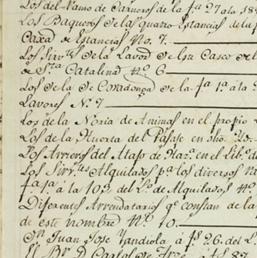 Los del Ramo de Carneros de la fª 27 ala 58
Los Baqueros de las quatro Estancias de la f
Caxa de Estancias No. 7.
Los Sirv.tes de la Lavor de Su Casco de
de S.ta Catalina No. 6
Los de la de Condonga de la fª 1ª ala 5
Lavores N. 7
Los de la Noria de Animas en el propio L
Los de la Huerta del Passe en dho. No.
Los Arrieros del Atajo de Haz.da en el Lib.o de
Los Sirv.tes Alquilados p.a los diversos
faxª a la 103 del L.o de Alquilados No.
Diferentes Arrendatarios q.e constan de la
de este nombre No. 10.
Dn. Juan Jose Yandiola á fs. 26 del L.
El Sr. D. Carlos de